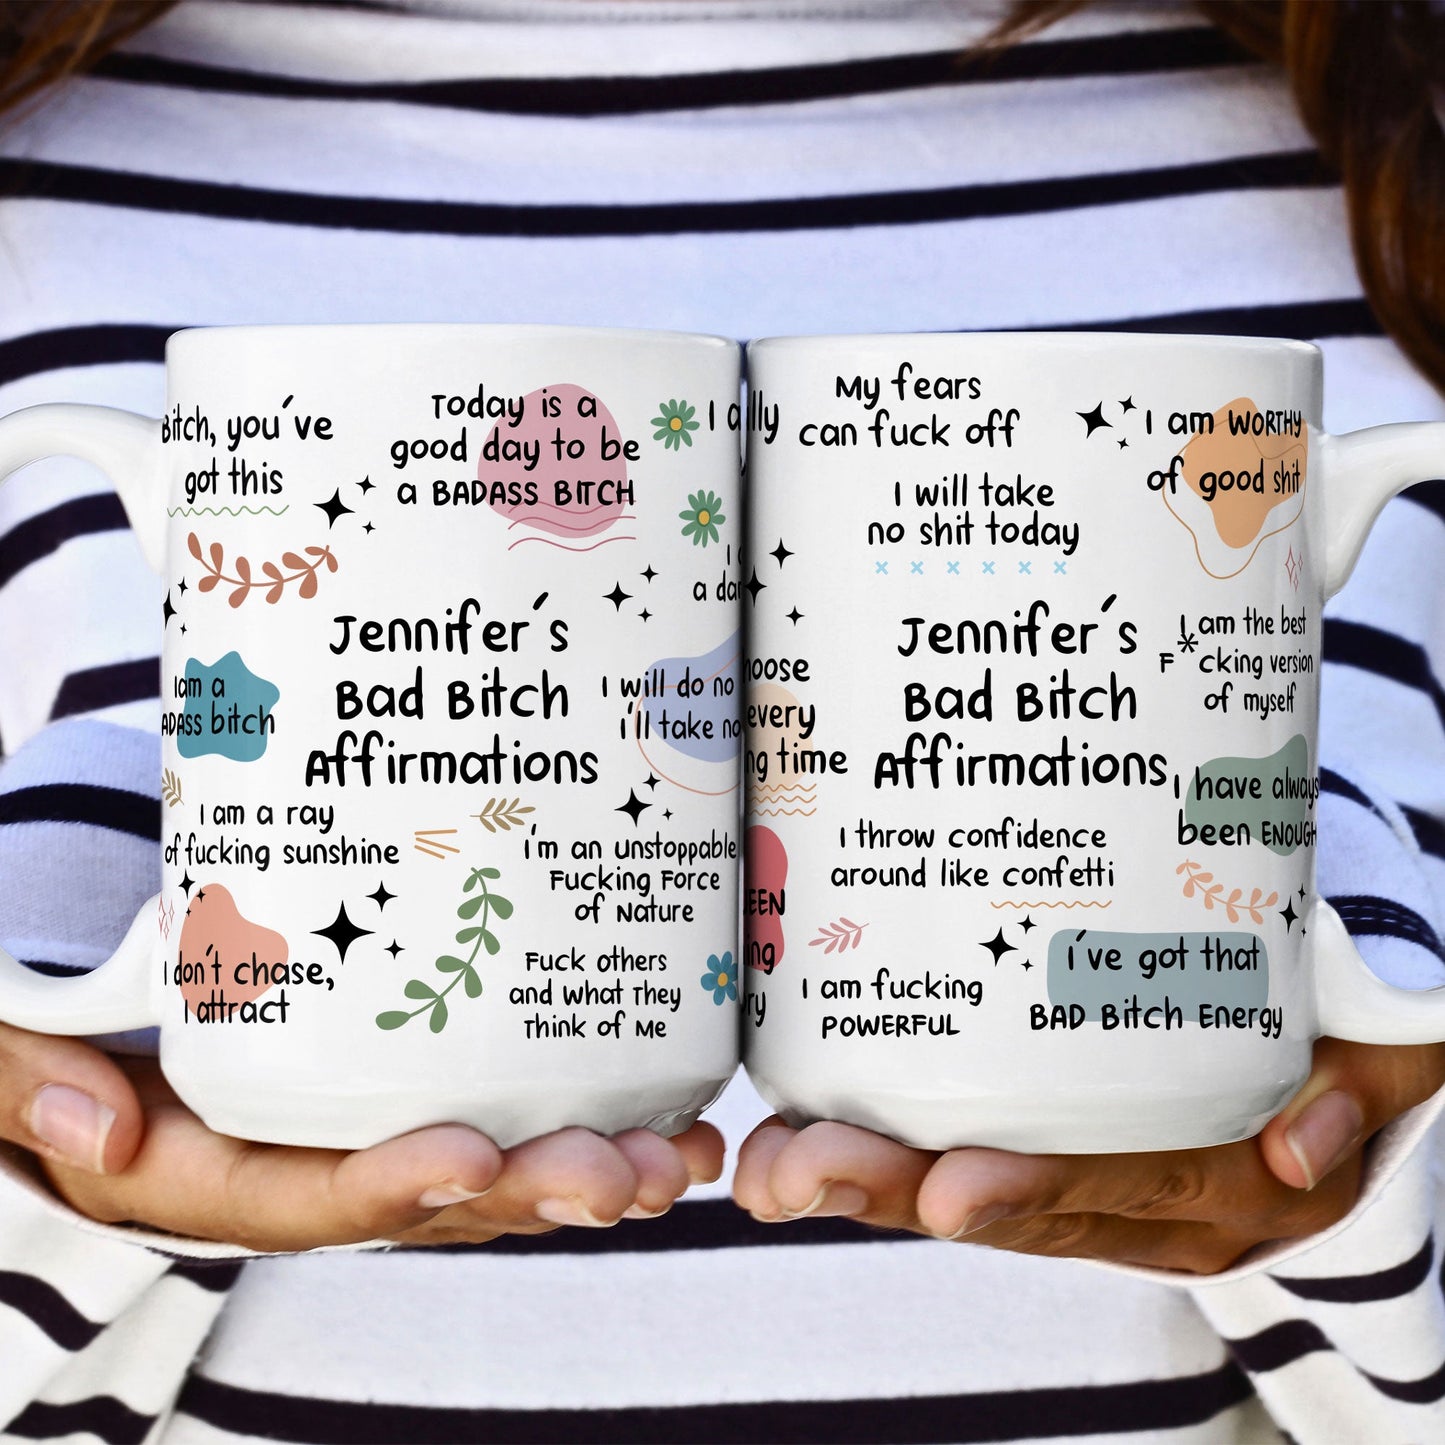 Bitch, you´ve
got this
Today is a
good day to be
a BADASS BITCH
Jennifer´s
Bad Bitch
Affirmations
I am a
bitch
I will do no
i´ll take no
I am a ray
of fucking sunshine
i´m an unstoppable
Fucking Force
of Nature
I don´t chase,
I attract
Fuck others
and what They
Think of Me
My fears
can fuck off
I am WORTHY
of good shit
I will take
no shit today
Jennifer´s
Bad Bitch
Affirmations
I am the best
F*cking version
of myself
every
time
I have always
been ENOUGH
I throw confidence
around like confetti
i´ve got that
BAD Bitch Energy
I am fucking
POWERFUL